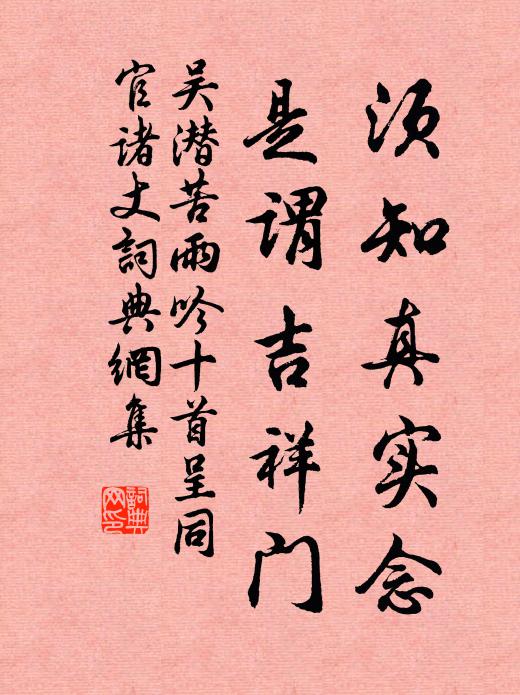 须知真实念
是谓吉祥门
吴潜苦雨吟十首呈同
官诸丈詞典網集
詞典网印